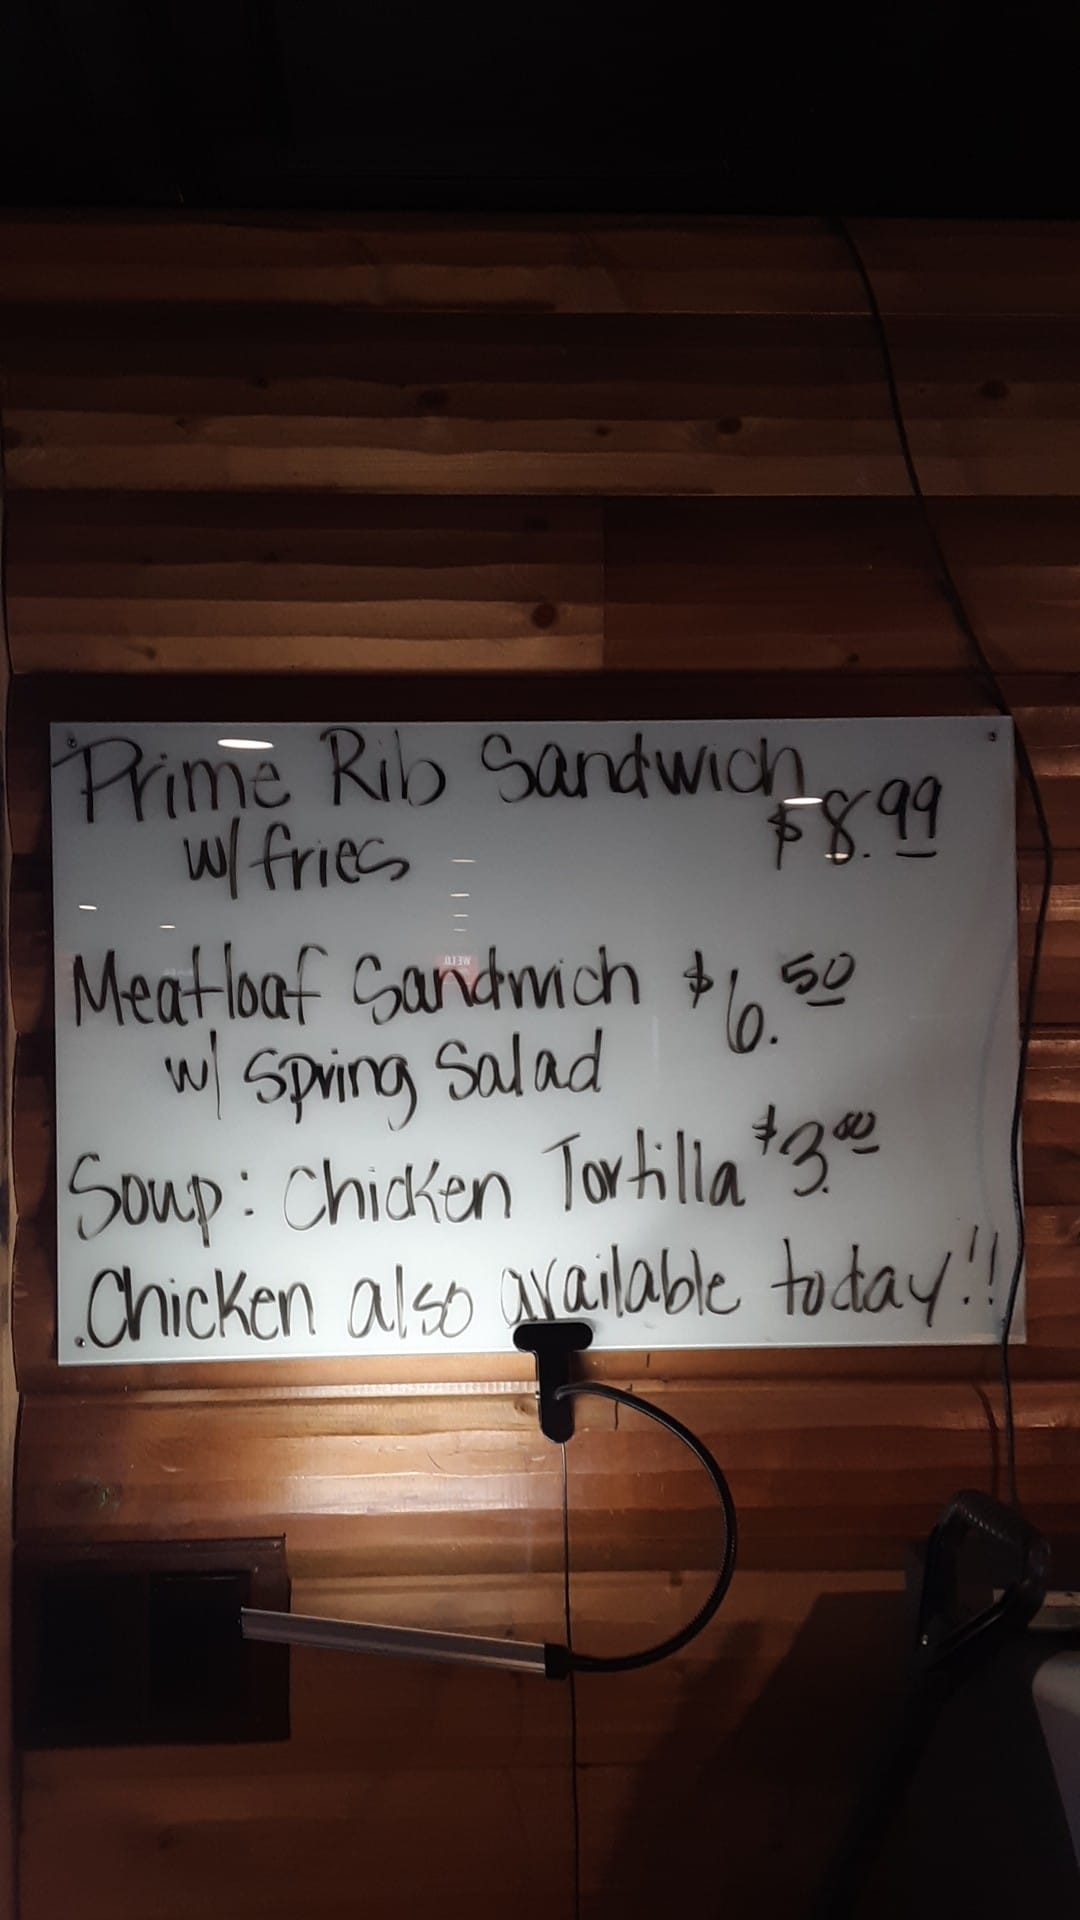 Prime Rib Sandwich
w/ fries $8.99
Meatloaf Sandwich $6.50
w/ Spring Salad
Soup: Chicken Tortilla $3.00
Chicken also available today!!